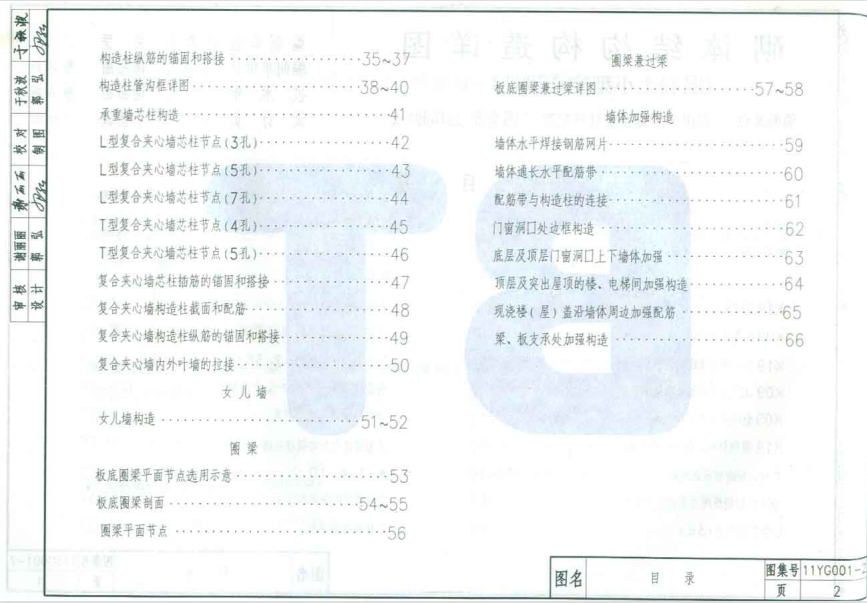 构造柱纵筋的锚固和搭接·················35~37
构造柱管沟框详图·················38~40
承重墙芯柱构造·················41
L型复合夹心墙芯柱节点(3孔)·················42
L型复合夹心墙芯柱节点(5孔)·················43
L型复合夹心墙芯柱节点(7孔)·················44
T型复合夹心墙芯柱节点(4孔)·················45
T型复合夹心墙芯柱节点(5孔)·················46
复合夹心墙芯柱插筋的锚固和搭接·················47
复合夹心墙构造柱截面和配筋·················48
复合夹心墙构造柱纵筋的锚固和搭接·················49
复合夹心墙内外叶墙的拉接·················50
女儿墙
女儿墙构造·················51~52
圈梁
板底圈梁平面节点选用示意·················53
板底圈梁剖面·················54~55
圈梁平面节点·················56
圈梁兼过梁
板底圈梁兼过梁详图·················57~58
墙体加强构造
墙体水平焊接钢筋网片·················59
墙体通长水平配筋带·················60
配筋带与构造柱的连接·················61
门窗洞口处边框构造·················62
底层及顶层门窗洞口上下墙体加强·················63
顶层及突出屋顶的楼、电梯间加强构造·················64
现浇楼(屋)盖沿墙体周边加强配筋·················65
梁、板支承处加强构造·················66
审核 谢丽丽
校对 于秋波
设计 郭弘
制图 郭弘
图名 目录
图集号 11YG001-
页 2